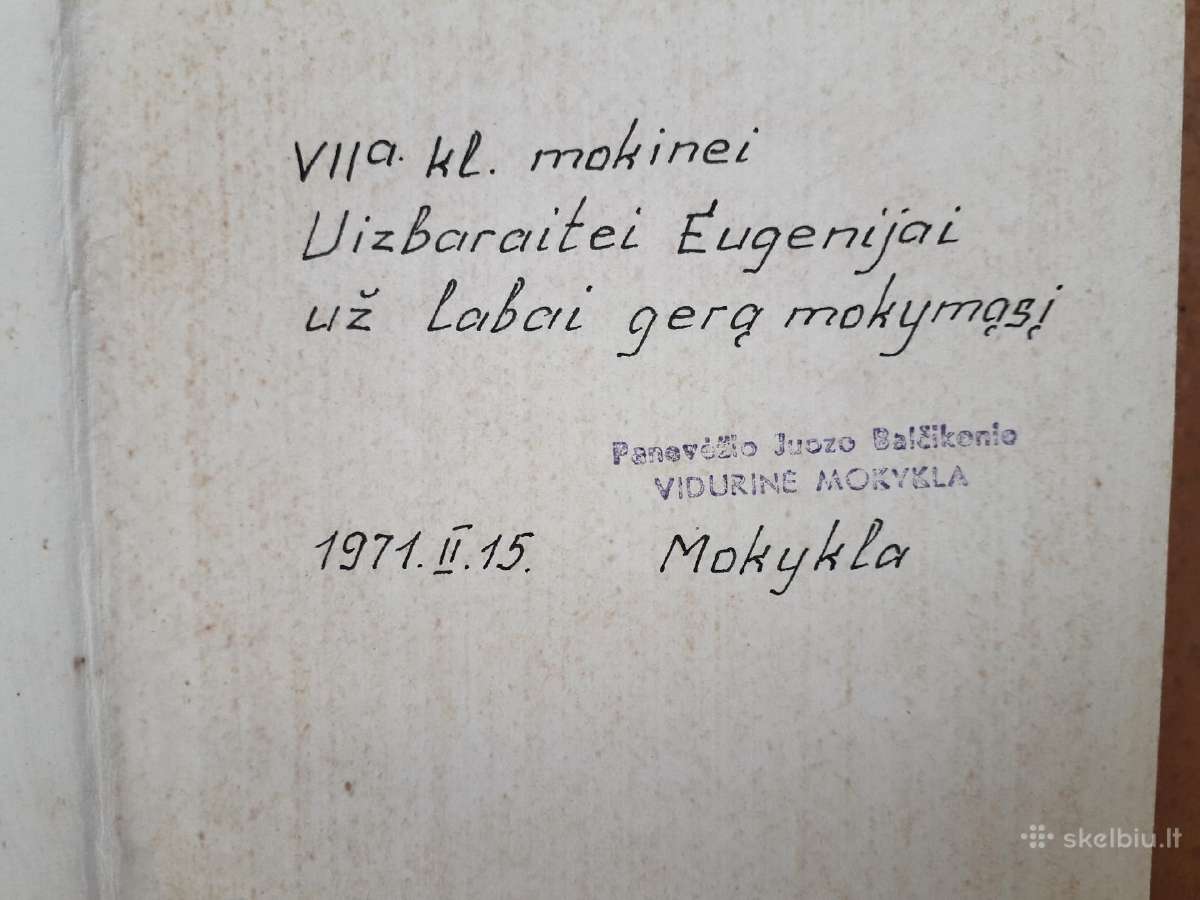 VIIa. kl. mokinei
Vizbaraitei Eugenijai
už labai gerą mokymąsį
Panevėžio Juozo Balčikonio
VIDURINĖ MOKYKLA
1971.II.15. Mokykla
skelbiu.lt